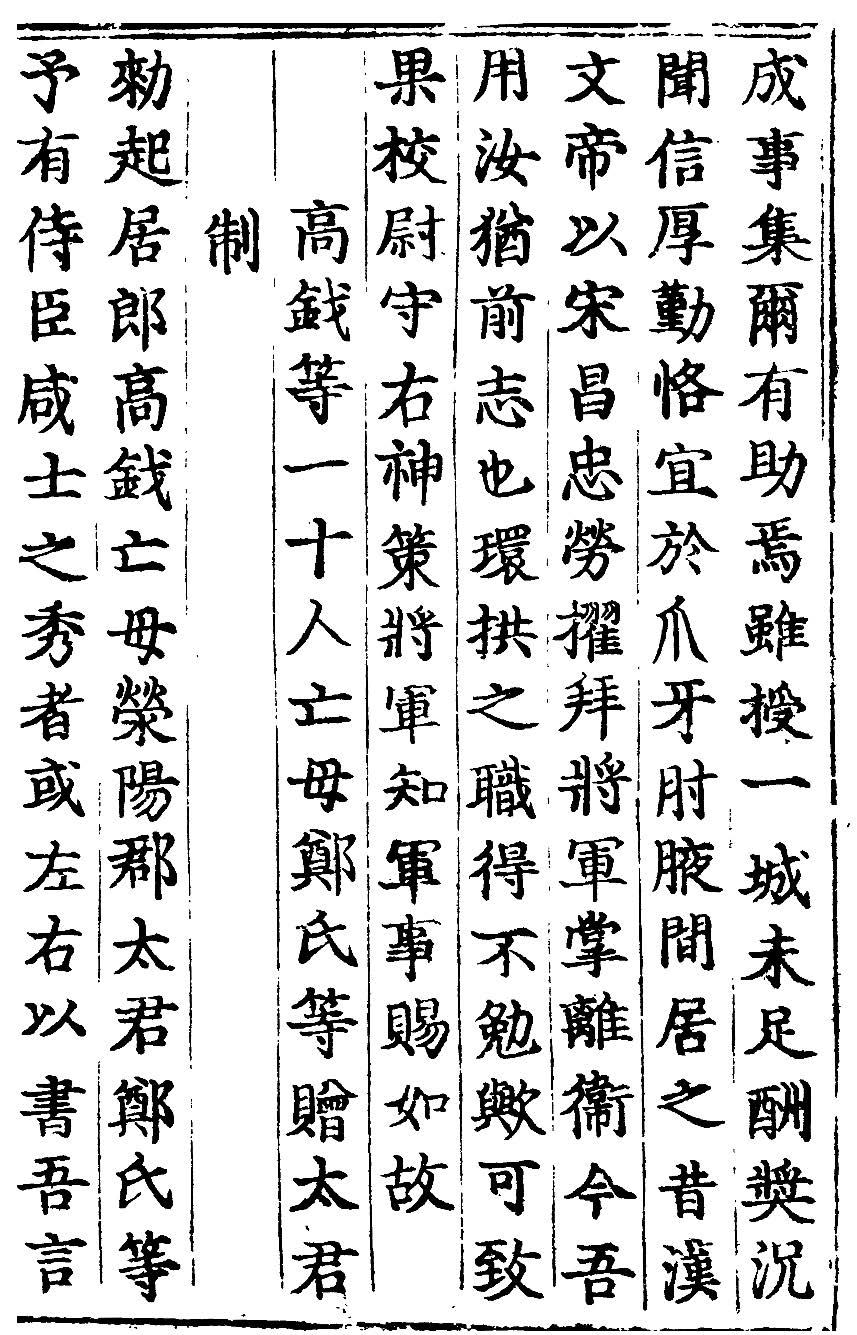 成事集爾有助焉雖授一城未足酬奬況
聞信厚勤恪宜於爪牙肘腋間居之昔漢
文帝以宋昌忠勞擢拜將軍掌離衞今吾
用汝猶前志也環拱之職得不勉歟可致
果校尉守右神策將軍知軍事賜如故
高釴等一十人亡母鄭氏等贈太君
制
勑起居郎高釴亡母滎陽郡太君鄭氏等
予有侍臣咸士之秀者或左右以書吾言